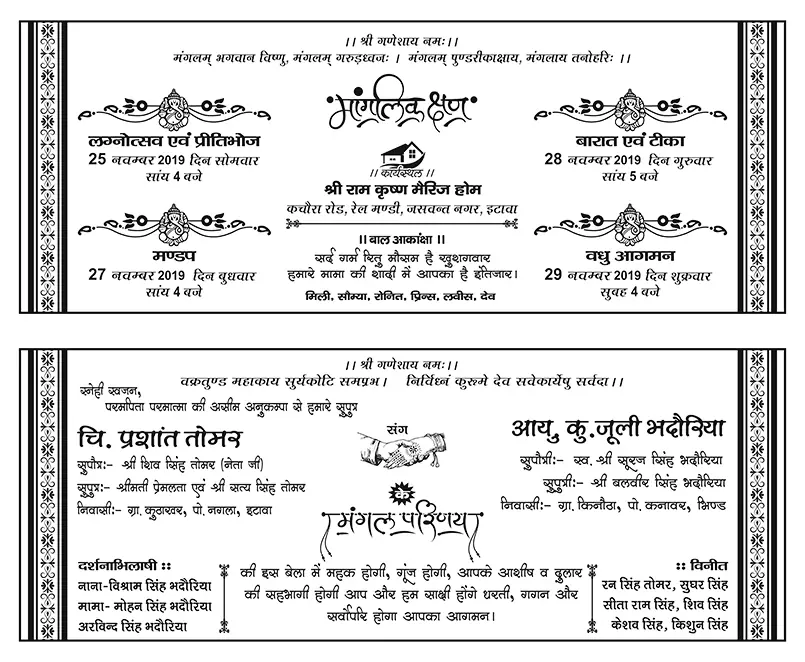 ।। श्री गणेशाय नमः।।
मंगलम् भगवान विष्णु, मंगलम् गरुड़ध्वजः । मंगलम् पुण्डरीकाक्षाय, मंगलाय तनोहरिः ।।
मांगलिक क्षण
लग्नोत्सव एवं प्रीतिभोज
25 नवम्बर 2019 दिन सोमवार
सांय 4 बजे
मण्डप
27 नवम्बर 2019 दिन बुधवार
सांय 4 बजे
।। कार्यस्थल ।।
श्री राम कृष्ण मैरिज होम
कचौरा रोड, रेल मण्डी, जसवन्त नगर, इटावा
।। बाल आकांक्षा ।।
सर्द गर्म रितु मौसम है खुशगवार
हमारे मामा की शादी में आपका है इंतेजार।
मिली, सौम्या, रोनित, प्रिन्स, लवीस, देव
बारात एवं टीका
28 नवम्बर 2019 दिन गुरुवार
सांय 5 बजे
वधु आगमन
29 नवम्बर 2019 दिन शुक्रवार
सुबह 4 बजे
।। श्री गणेशाय नमः।।
वक्रतुण्ड महाकाय सुर्यकोटि समप्रभ। निर्विध्नं कुरुमे देव सवेकार्येषु सर्वदा।।
स्नेही स्वजन,
परमपिता परमात्मा की असीम अनुकम्पा से हमारे सुपुत्र
चि. प्रशांत तोमर
सुपौत्र:- श्री शिव सिंह तोमर (नेता जी)
सुपुत्र:- श्रीमती प्रेमलता एवं श्री सत्य सिंह तोमर
निवासी:- ग्रा. कुठाखर, पो. नगला, इटावा
संग
आयु. कु.जूली भदौरिया
सुपौत्री:- स्व. श्री सूरज सिंह भदौरिया
सुपुत्री:- श्री बलवीर सिंह भदौरिया
निवासी:- ग्रा. किनौठा, पो. कनावर, भिण्ड
के
मंगल परिणय
दर्शनाभिलाषी ::
नाना-विश्राम सिंह भदौरिया
मामा- मोहन सिंह भदौरिया
अरविन्द सिंह भदौरिया
की इस बेला में महक होगी, गूंज होगी, आपके आशीष व दुलार
की सहभागी होगी आप और हम साक्षी होंगे धरती, गगन और
सर्वोपरि होगा आपका आगमन।
:: विनीत
रन सिंह तोमर, सुघर सिंह
सीता राम सिंह, शिव सिंह
केशव सिंह, किशुन सिंह